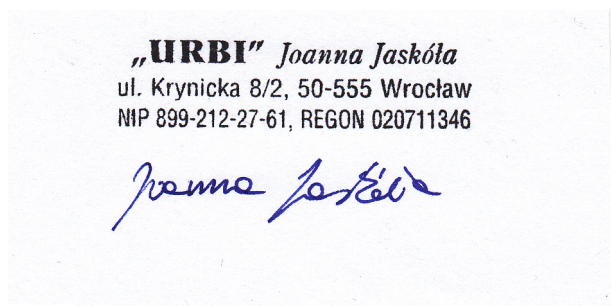 „URBI” Joanna Jaskóła
ul. Krynicka 8/2, 50-555 Wrocław
NIP 899-212-27-61, REGON 020711346
Joanna Jaskóła